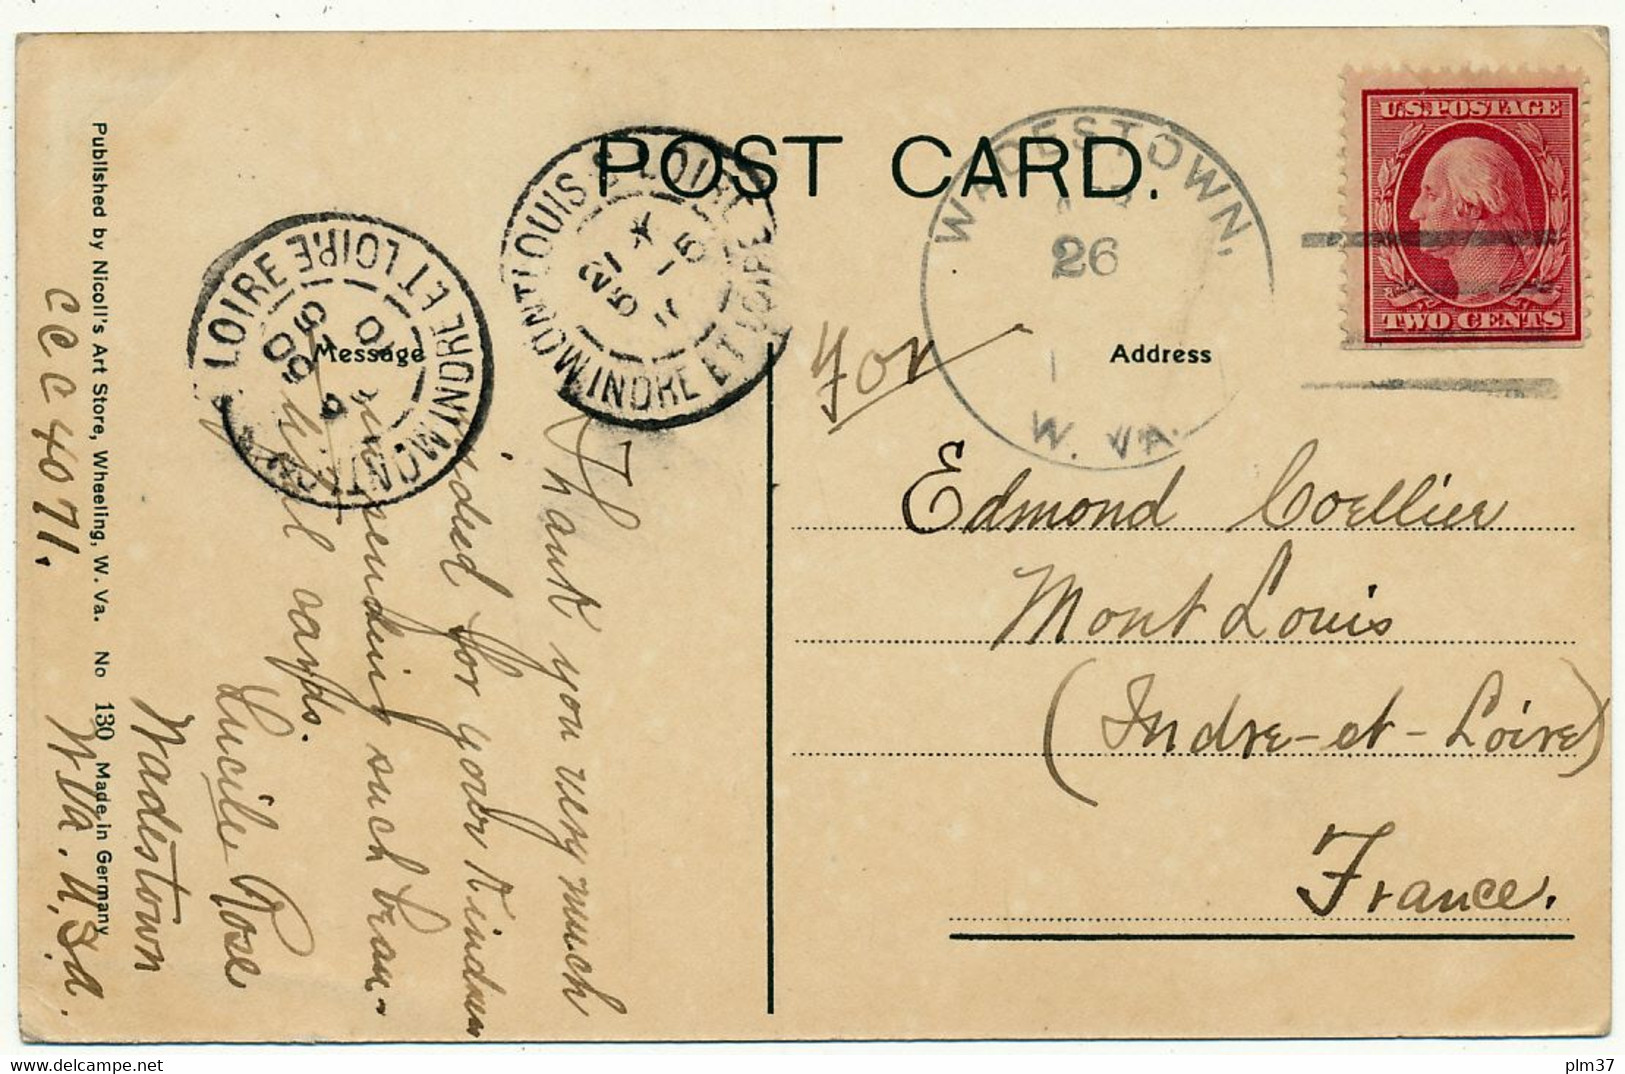 POST CARD.
WADESTOWN,
26
W. VA.
U.S. POSTAGE
TWO CENTS
MONTLOUIS S. LOIRE
INDRE ET LOIRE
LOIRE
INDRE ET LOIRE
Message
Address
For
Edmond Coellier
Mont Louis
(Indre-et-Loire)
France.
Thank you very much
indeed for your kindness
in sending such beau-
cards.
Lucile Rose
Wadestown
W.Va. U.S.A.
CCC 4071.
Published by Nicoll's Art Store, Wheeling, W. Va. No 130 Made in Germany
plm37